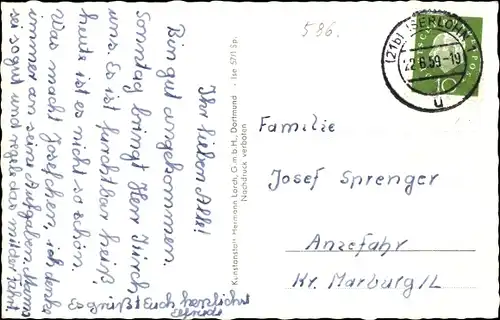 586.
(21b) ISERLOHN 1
22.6.59-19
u
10
Ihr lieben Alle!
Bin gut angekommen.
Sonntag bringt Herr
uns. Es ist furchtbar heiß
heute ist es nicht so schön.
Was macht Josefchen, ich denke
immer an seine Aufgaben. Mama
sei so gut und regel das mit der Fahrt
Es grüßt Euch herzlichst
Elfriede
Kunstanstalt Hermann Lorch, G.m.b.H., Dortmund · Ise 57/1 Sp.
Nachdruck verboten
Familie
Josef Sprenger
Anzefahr
Kr. Marburg/L